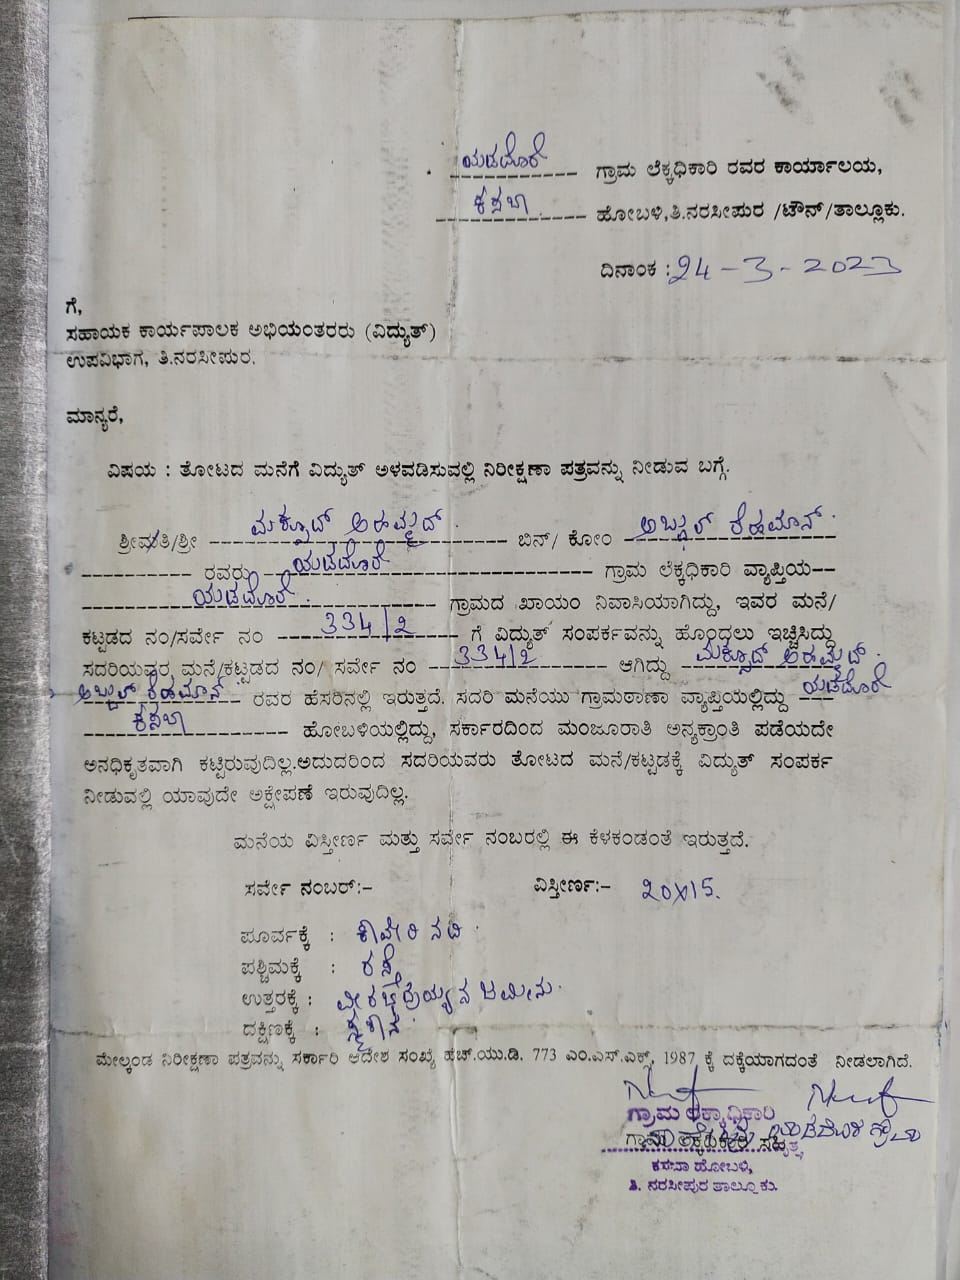 ಯಡದೊರೆ ಗ್ರಾಮ ಲೆಕ್ಕಧಿಕಾರಿ ರವರ ಕಾರ್ಯಾಲಯ,
ಕಸಬಾ ಹೋಬಳಿ,ತಿ.ನರಸೀಪುರ /ಟೌನ್/ತಾಲ್ಲೂಕು.
ದಿನಾಂಕ : 24-3-2023
ಗೆ,
ಸಹಾಯಕ ಕಾರ್ಯಪಾಲಕ ಅಭಿಯಂತರರು (ವಿದ್ಯುತ್)
ಉಪವಿಭಾಗ, ತಿ.ನರಸೀಪುರ.
ಮಾನ್ಯರೆ,
ವಿಷಯ : ತೋಟದ ಮನೆಗೆ ವಿದ್ಯುತ್ ಅಳವಡಿಸುವಲ್ಲಿ ನಿರೀಕ್ಷಣಾ ಪತ್ರವನ್ನು ನೀಡುವ ಬಗ್ಗೆ.
ಶ್ರೀಮತಿ/ಶ್ರೀ ಮಕ್ಸೂದ್ ಅಹಮ್ಮದ್ ಬಿನ್/ ಕೋಂ ಅಬ್ದುಲ್ ರೆಹಮಾನ್
ರವರು ಯಡದೊರೆ ಗ್ರಾಮ ಲೆಕ್ಕಧಿಕಾರಿ ವ್ಯಾಪ್ತಿಯ
ಯಡದೊರೆ ಗ್ರಾಮದ ಖಾಯಂ ನಿವಾಸಿಯಾಗಿದ್ದು, ಇವರ ಮನೆ/
ಕಟ್ಟಡದ ನಂ/ಸರ್ವೇ ನಂ 334/2 ಗೆ ವಿದ್ಯುತ್ ಸಂಪರ್ಕವನ್ನು ಹೊಂದಲು ಇಚ್ಚಿಸಿದ್ದು
ಸದರಿಯವರ ಮನೆ/ಕಟ್ಟಡದ ನಂ/ ಸರ್ವೇ ನಂ 334/2 ಆಗಿದ್ದು ಮಕ್ಸೂದ್ ಅಹಮ್ಮದ್
ಅಬ್ದುಲ್ ರೆಹಮಾನ್ ರವರ ಹೆಸರಿನಲ್ಲಿ ಇರುತ್ತದೆ. ಸದರಿ ಮನೆಯು ಗ್ರಾಮಠಾಣಾ ವ್ಯಾಪ್ತಿಯಲ್ಲಿದ್ದು ಯಡದೊರೆ
ಕಸಬಾ ಹೋಬಳಿಯಲ್ಲಿದ್ದು, ಸರ್ಕಾರದಿಂದ ಮಂಜೂರಾತಿ ಅನ್ಯಕ್ರಾಂತಿ ಪಡೆಯದೇ
ಅನಧಿಕೃತವಾಗಿ ಕಟ್ಟಿರುವುದಿಲ್ಲ.ಅದುದರಿಂದ ಸದರಿಯವರು ತೋಟದ ಮನೆ/ಕಟ್ಟಡಕ್ಕೆ ವಿದ್ಯುತ್ ಸಂಪರ್ಕ
ನೀಡುವಲ್ಲಿ ಯಾವುದೇ ಅಕ್ಷೇಪಣೆ ಇರುವುದಿಲ್ಲ.
ಮನೆಯ ವಿಸ್ತೀರ್ಣ ಮತ್ತು ಸರ್ವೇ ನಂಬರಲ್ಲಿ ಈ ಕೆಳಕಂಡಂತೆ ಇರುತ್ತದೆ.
ಸರ್ವೇ ನಂಬರ್:- ವಿಸ್ತೀರ್ಣ:- 20x15.
ಪೂರ್ವಕ್ಕೆ : ಕಾವೇರಿ ನದಿ
ಪಶ್ಚಿಮಕ್ಕೆ : ರಸ್ತೆ
ಉತ್ತರಕ್ಕೆ : ಜಮೀನು.
ದಕ್ಷಿಣಕ್ಕೆ : ಸ್ಮಶಾನ
ಮೇಲ್ಕಂಡ ನಿರೀಕ್ಷಣಾ ಪತ್ರವನ್ನು ಸರ್ಕಾರಿ ಆದೇಶ ಸಂಖ್ಯೆ ಹೆಚ್.ಯು.ಡಿ. 773 ಎಂ.ಎಸ್.ಎಕ್ಸ್, 1987 ಕ್ಕೆ ದಕ್ಕೆಯಾಗದಂತೆ ನೀಡಲಾಗಿದೆ.
ಗ್ರಾಮ ಲೆಕ್ಕಾಧಿಕಾರಿ
ಗ್ರಾಮ ಲೆಕ್ಕಧಿಕಾರಿ
ಕಸಬಾ ಹೋಬಳಿ,
ತಿ. ನರಸೀಪುರ ತಾಲ್ಲೂಕು.